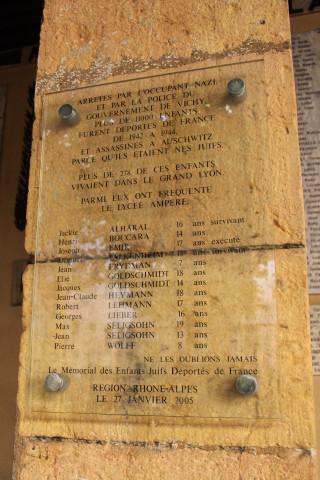 ARRETES PAR L'OCCUPANT NAZI
ET PAR LA POLICE DU
GOUVERNEMENT DE VICHY,
PLUS DE 11000 ENFANTS
FURENT DEPORTES DE FRANCE
DE 1942 A 1944,
ET ASSASSINES A AUSCHWITZ
PARCE QU'ILS ETAIENT NES JUIFS.
PLUS DE 278 DE CES ENFANTS
VIVAIENT DANS LE GRAND LYON.
PARMI EUX ONT FREQUENTE
LE LYCEE AMPERE:
Jackie ALHARAL 16 ans survivant
Henri BOCCARA 14 ans
Joseph EMIR 17 ans exécuté
FALKENHEIM 18 ans survivant
Jean FRYDMAN 18 ans
Elie GOLDSCHMIDT 18 ans
Jacques GOLDSCHMIDT 14 ans
Jean-Claude HEYMANN 18 ans
Robert LEHMANN 17 ans
Georges LIEBER 16 ans
Max SELIGSOHN 19 ans
Jean SELIGSOHN 13 ans
Pierre WOLFF 8 ans
NE LES OUBLIONS JAMAIS
Le Mémorial des Enfants Juifs Déportés de France
REGION RHONE-ALPES
LE 27 JANVIER 2005